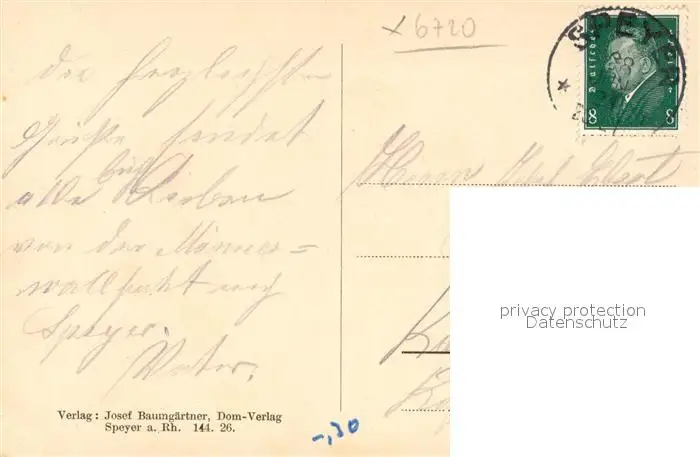 x 6720
SPEYER
Deutsches Reich
8 8
Die herzlichsten
Grüße sendet
alle Lieben
von der Männer=
wallfahrt nach
Speyer.
Vater.
Herrn
privacy protection
Datenschutz
Verlag: Josef Baumgärtner, Dom-Verlag
Speyer a. Rh. 144. 26.
-,30